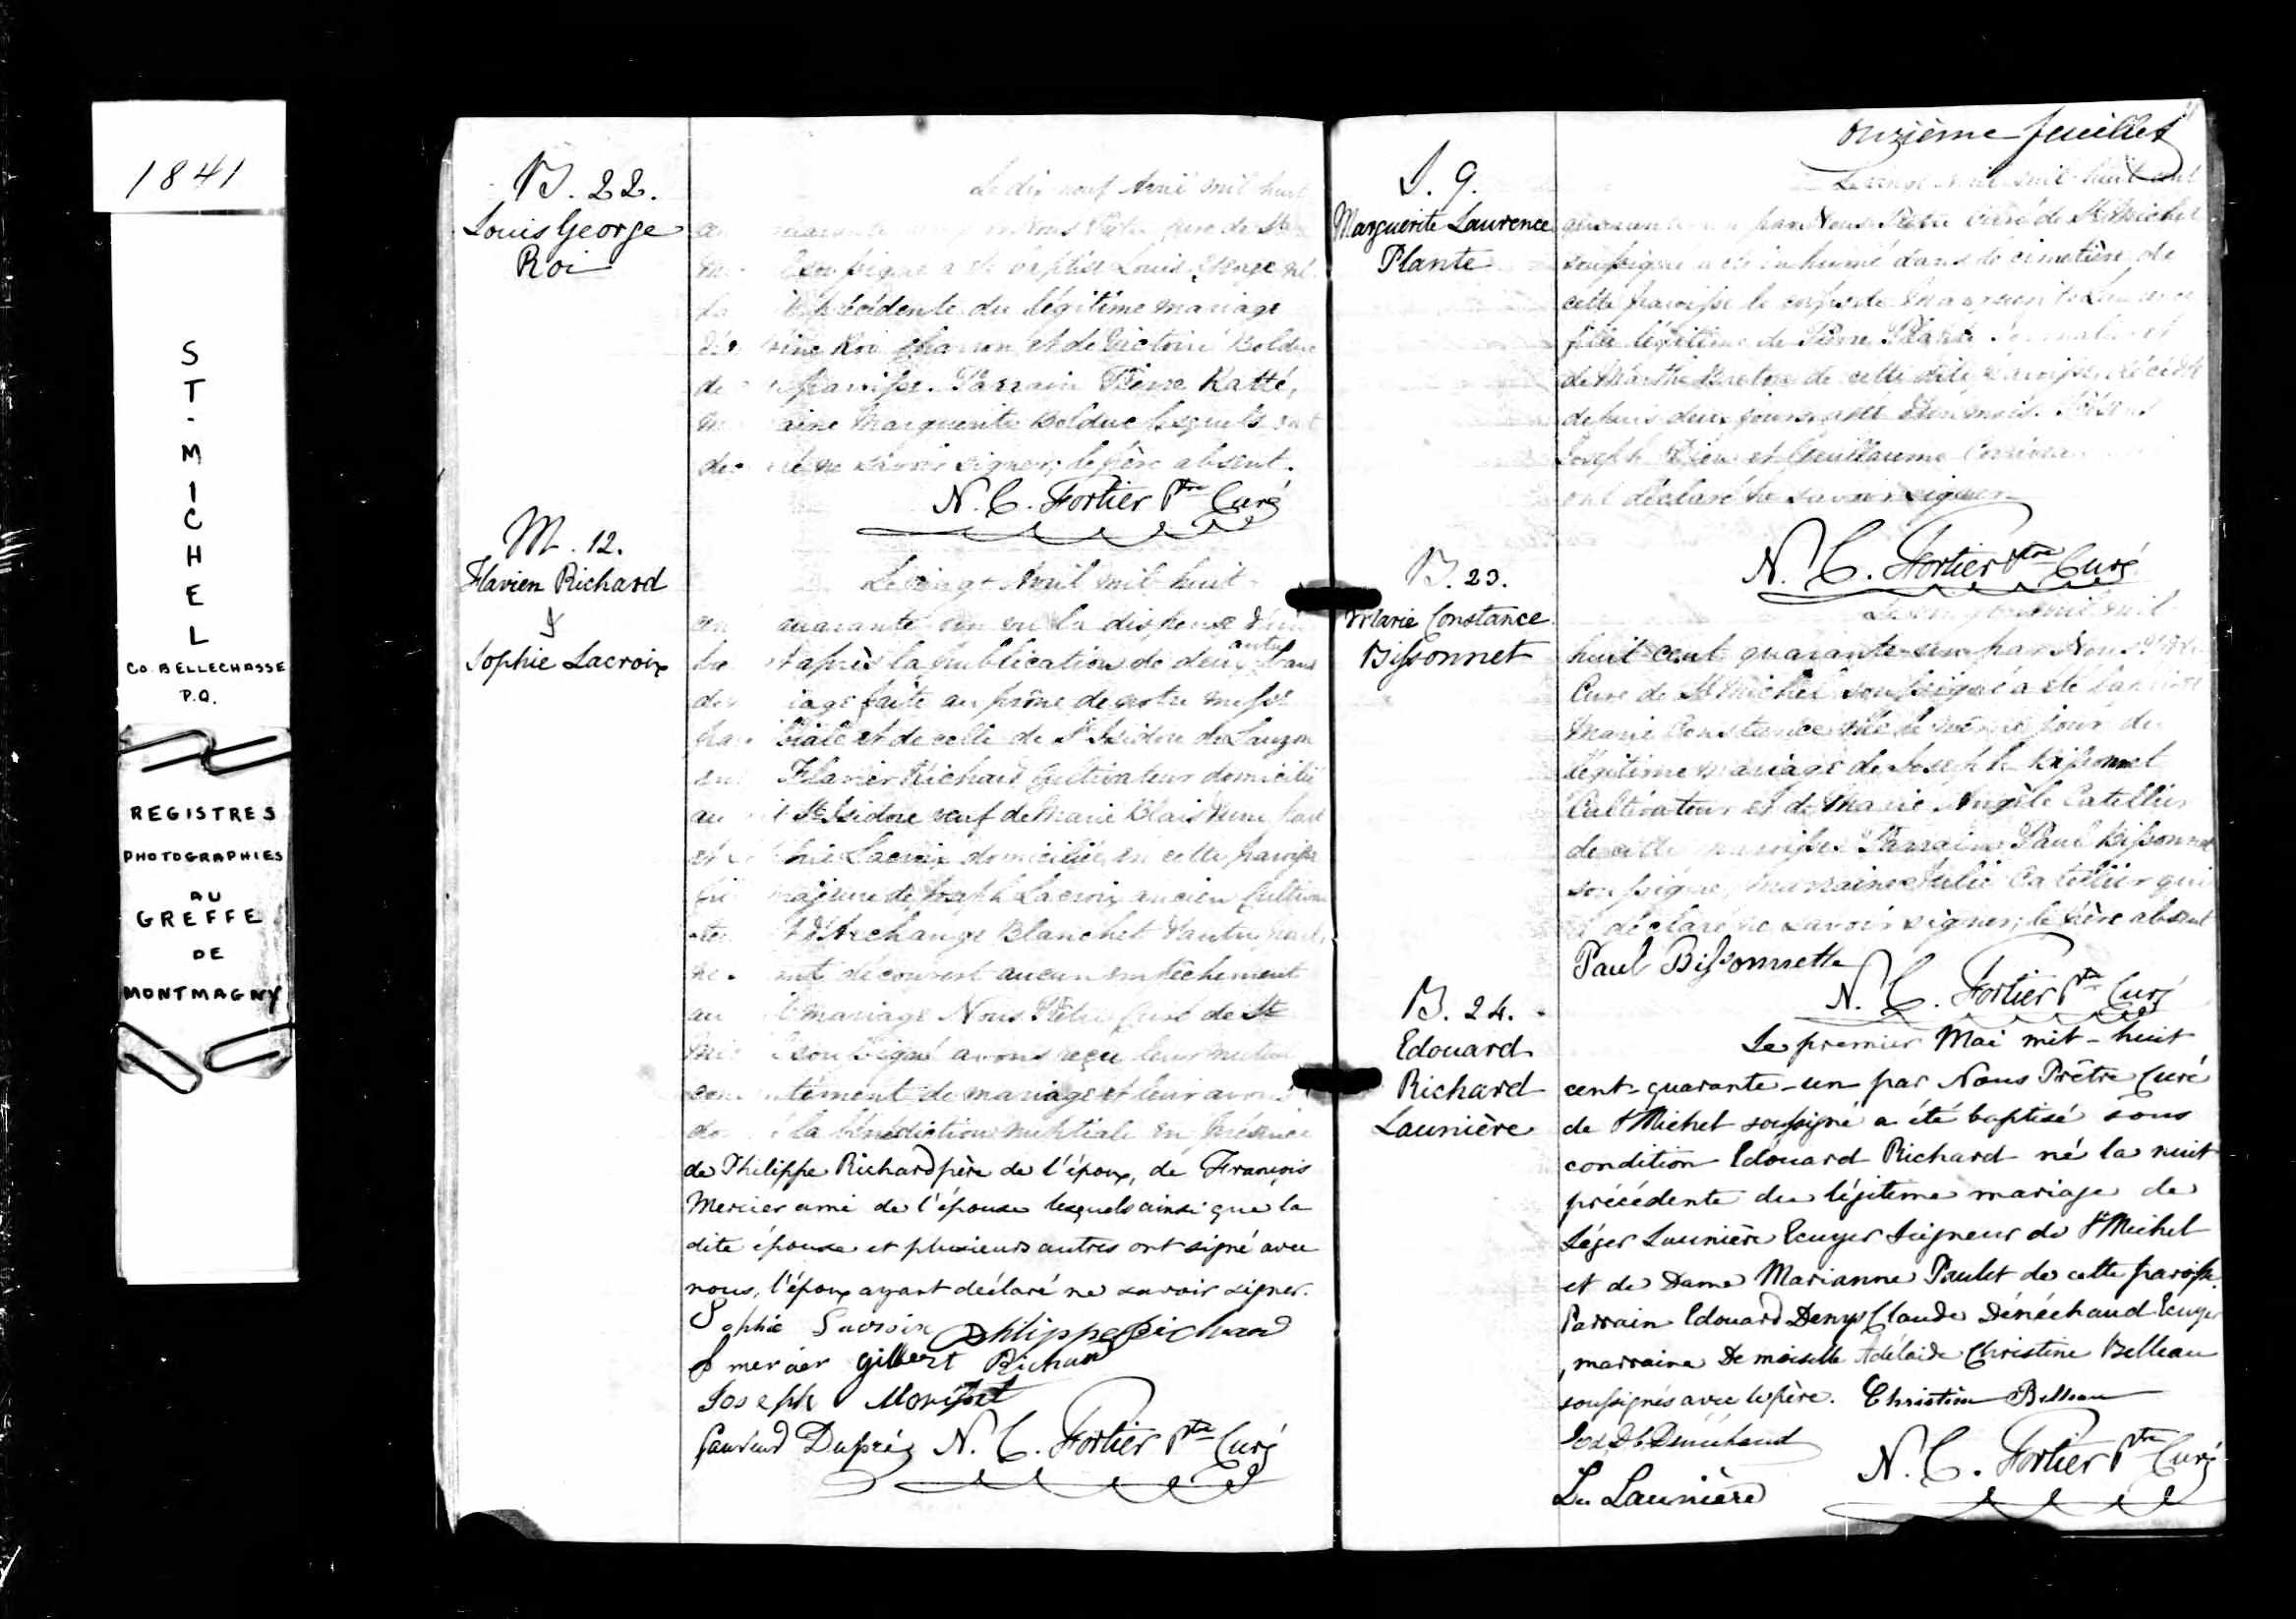 1841
S
T
.
M
I
C
H
E
L
CO. BELLECHASSE
P.Q.
REGISTRES
PHOTOGRAPHIES
AU
GREFFE
DE
MONTMAGNY
B. 22.
Louis George
Roi
Le dix neuf Avril mil huit
quarante Nous Prêtre Curé de St
soussigné a été baptisé Louis George né
précédente du légitime mariage
Roi charron et de Victoire Bolduc
de paroisse. Parrain Pierre Katté,
Marguerite Bolduc lesquels ont
ne savoir signer; le père absent.
N. C. Fortier Ptre Curé
M. 12.
Flavien Richard
&
Sophie Lacroix
Le vingt Avril mil huit
quarante un vu la dispense d'un
et après la publication de deux autres bans
faite au prône de notre messe
et de celle de St Isidore de Lauzon
Flavien Richard Cultivateur domicilié
au St Isidore veuf de Marie Blais d'une part
et Lacroix domiciliée en cette paroisse
majeure de Joseph Lacroix ancien Cultiva
et d'Archange Blanchet d'autre part,
découvert aucun empêchement
au mariage Nous Prêtre Curé de St
soussigné avons reçu leur mutuel
consentement de mariage et leur avons
la bénédiction nuptiale en présence
de Philippe Richard père de l'époux, de François
Mercier ami de l'épouse lesquels ainsi que la
dite épouse et plusieurs autres ont signé avec
nous, l'époux ayant déclaré ne savoir signer.
Sophie Lacroix Philippe Richard
F mercier gilbert Richard
Joseph Morisset
Dupréz N. C. Fortier Ptre Curé
onzième feuillet
S. 9.
Marguerite Laurence
Plante
Le vingt Avril mil-huit cent
quarante un par Nous Prêtre Curé de St Michel
soussigné a été inhumé dans le cimetière de
cette paroisse le corps de Marguerite Laurence
fille légitime de Pierre Plante Journalier et
de Marthe Breton de cette dite paroisse, décédée
depuis deux jours agée d'un mois. Présens
Joseph et Guillaume Corriveau
ont déclaré ne savoir signer
N. C. Fortier Ptre Curé
B. 23.
Marie Constance
Bissonnet
Le vingt Avril mil
huit cent quarante-un par Nous Prêtre
Curé de St Michel soussigné a été baptisée
Marie Constance née le même jour du
légitime mariage de Joseph Bissonnet
Cultivateur et de Marie Angèle Catellier
de cette paroisse. Parrain Paul Bissonnet
soussigné, marraine Julie Catellier qui
a déclaré ne savoir signer; le père absent
Paul Bissonnette
N. C. Fortier Ptre Curé
B. 24.
Edouard
Richard
Launière
Le premier Mai mil-huit
cent-quarante-un par Nous Prêtre Curé
de St Michel soussigné a été baptisé sous
condition Edouard Richard né la nuit
précédente du légitime mariage de
Léger Launière Ecuyer Seigneur de St Michel
et de Dame Marianne Paulet de cette paroisse.
Parrain Edouard Denys Claude Dénéchaud Ecuyer
, marraine Demoiselle Adélaïde Christine Belleau
soussignés avec le père. Christine Belleau
Ed. D. C. Dénéchaud
N. C. Fortier Ptre Curé
Lr Launière